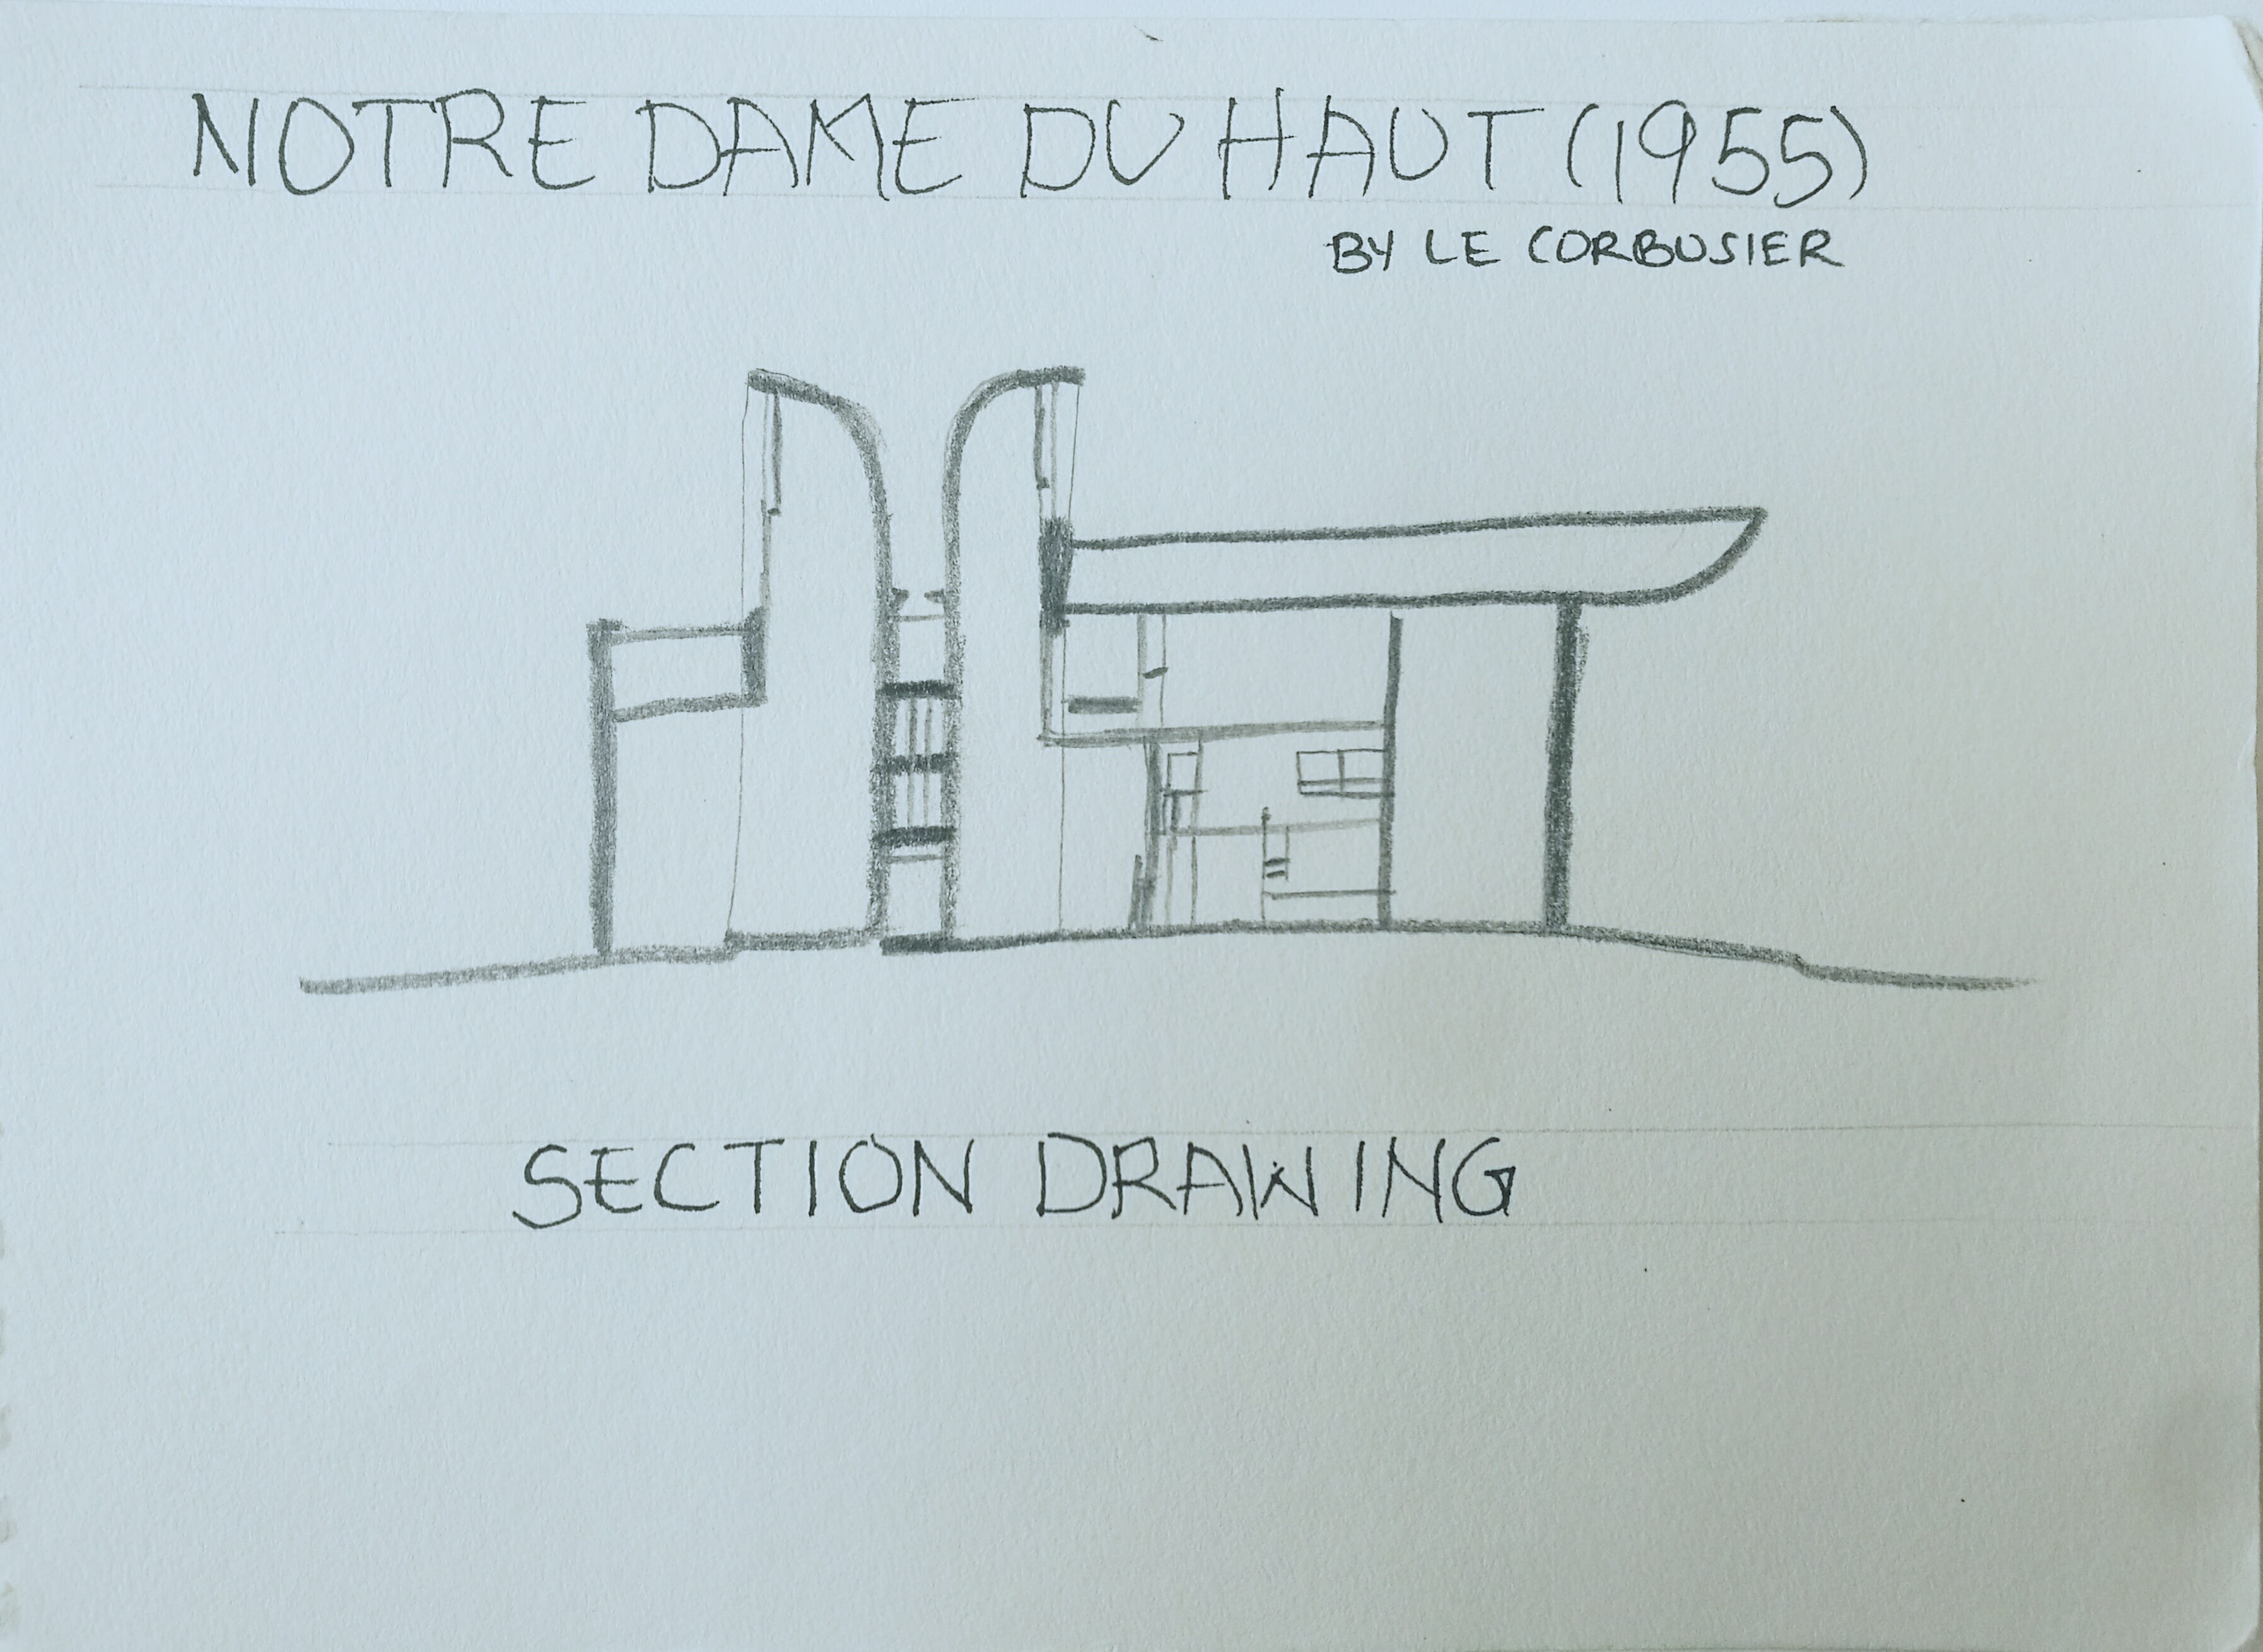 NOTRE DAME DU HAUT (1955)
BY LE CORBUSIER
SECTION DRAWING